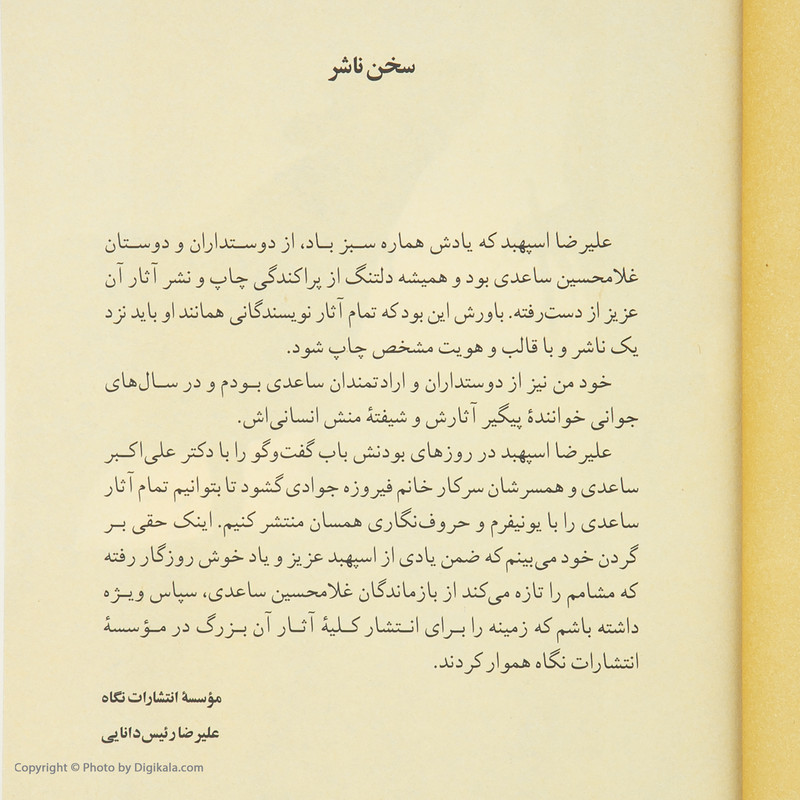 سخن ناشر
علیرضا اسپهبد که یادش هماره سبز باد، از دوستداران و دوستان
غلامحسین ساعدی بود و همیشه دلتنگ از پراکندگی چاپ و نشر آثار آن
عزیز از دست‌رفته. باورش این بود که تمام آثار نویسندگانی همانند او باید نزد
یک ناشر و با قالب و هویت مشخص چاپ شود.
خود من نیز از دوستداران و ارادتمندان ساعدی بودم و در سال‌های
جوانی خوانندهٔ پیگیر آثارش و شیفتهٔ منش انسانی‌اش.
علیرضا اسپهبد در روزهای بودنش باب گفت‌وگو را با دکتر علی‌اکبر
ساعدی و همسرشان سرکار خانم فیروزه جوادی گشود تا بتوانیم تمام آثار
ساعدی را با یونیفرم و حروف‌نگاری همسان منتشر کنیم. اینک حقی بر
گردن خود می‌بینم که ضمن یادی از اسپهبد عزیز و یاد خوش روزگار رفته
که مشامم را تازه می‌کند از بازماندگان غلامحسین ساعدی، سپاس ویژه
داشته باشم که زمینه را برای انتشار کلیهٔ آثار آن بزرگ در مؤسسهٔ
انتشارات نگاه هموار کردند.
مؤسسهٔ انتشارات نگاه
علیرضا رئیس‌دانایی
Copyright © Photo by Digikala.com